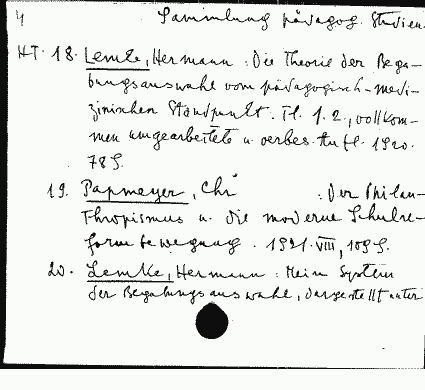 4 Sammlung pädagog. Studien
HT. 18. Lemke, Hermann: Die Theorie der Bega-
bungsauswahl vom pädagogisch-medi-
zinischen Standpunkt. Tl. 1. 2., vollkom-
men umgearbeitete u. verbes. Aufl. 1920.
78 S.
19. Papmeyer, Chr : Der Philan-
thropismus u. die moderne Schulre-
formbewegung. 1921. VIII, 109 S.
20. Lemke, Hermann: Mein System
der Begabungsauswahl, dargestellt unter